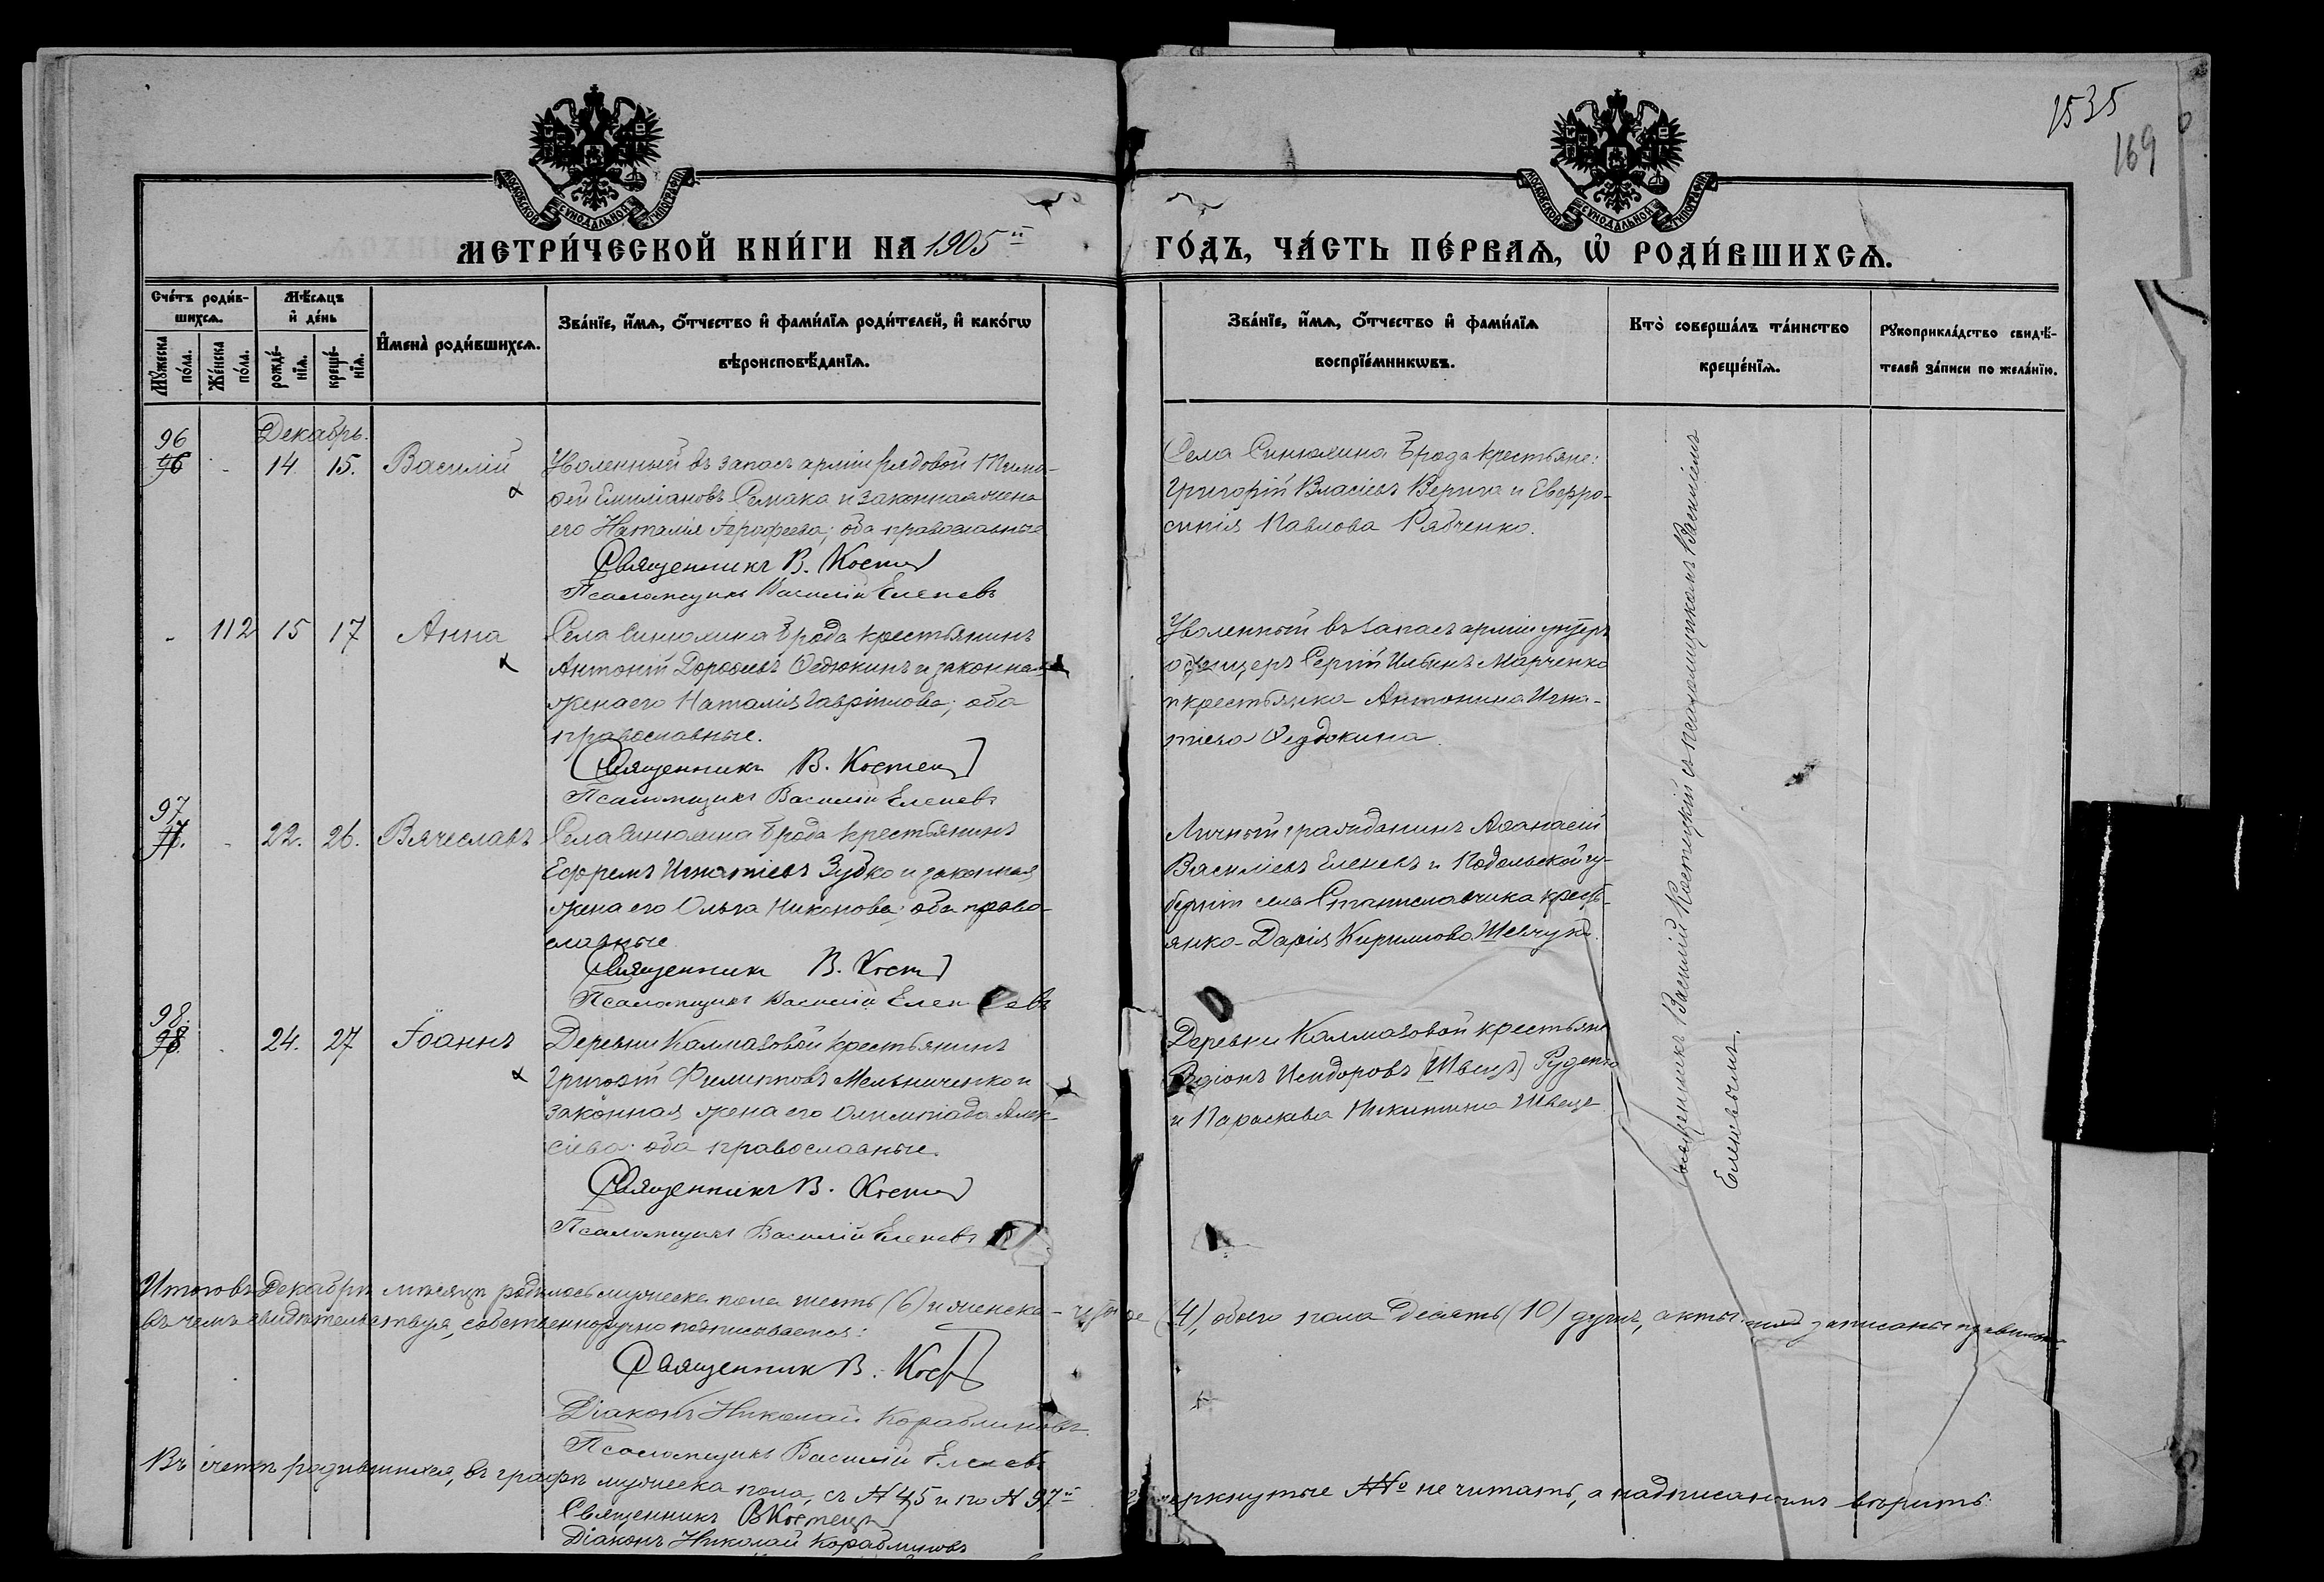 1535
169
МОСКОВСКОЙ СУНОДАЛЬНОЙ ТИПОГРАФІИ
МОСКОВСКОЙ СУНОДАЛЬНОЙ ТИПОГРАФІИ
МЕТРИ́ЧЕСКОЙ КНИ́ГИ НА 1905й ГО́ДЪ, ЧА́СТЬ ПЕ́РВАѦ, Ѡ҆ РОДИ́ВШИХСѦ.
Сче́тъ роди́в-
шихсѧ.
Мꙋ́жеска по́ла.
Же́нска по́ла.
Мѣ́сѧцъ
и҆ де́нь
рожде́-
нїѧ.
креще́-
нїѧ.
И҆мена̀ роди́вшихсѧ.
Зва́нїе, и҆́мѧ, ѻ҆́тчество и҆ фами́лїѧ роди́телей, и҆ како́гѡ
вѣроисповѣ́данїѧ.
Зва́нїе, и҆́мѧ, ѻ҆́тчество и҆ фами́лїѧ
воспрїе́мникѡвъ.
Кто̀ соверша́лъ та́инство
креще́нїѧ.
Рꙋкоприкла́дство свидѣ́-
телей за́писи по жела́нїю.
Декабрь.
96
96 - 14 15. Василій
Уволенный въ запасъ арміи рядовой Тимо-
фей Емиліановъ Семака и законная жена
его Наталія Іерофеева; оба православные
Священникъ В. Костец
Псаломщикъ Василій Еленевъ
Села Синюхина Брода крестьяне:
Григорій Власіевъ Верига и Евфро-
синія Павлова Рябченко.
- 112 15 17 Анна
Села Синюхина Брода крестьянинъ
Антоній Дороѳеевъ Ѳедюкинъ и законная
жена его Наталія Гавріилова; оба
православные.
Священникъ В. Костец
Псаломщикъ Василій Еленевъ
Уволенный въ запасъ арміи унтеръ
офицеръ Сергій Ильинъ Марченко
и крестьянка Антонина Игна-
тіева Ѳедюкина.
97
97. - 22. 26. Вячеславъ
Села Синюхина Брода крестьянинъ
Ефремъ Игнатіевъ Зубко и законная
жена его Ольга Никонова; оба право-
славные.
Священник В. Костец
Псаломщикъ Василій Еленевъ
Личный гражданинъ Аѳанасій
Василіевъ Еленевъ и Подольской гу-
берніи села Станиславчика кресть-
янка Дарія Кириллова Шевчукъ.
98.
98. 24. 27 Іоаннъ
Деревни Калмазовой крестьянинъ
Григорій Филипповъ Мельниченко и
законная жена его Олимпіада Алек-
сіева; оба православные.
Священникъ В. Костец
Псаломщикъ Василій Еленевъ
Деревни Калмазовой крестьяне
Родіонъ Исидоровъ [Швецъ] Руденко
и Параскева Никитина Швецъ
Священникъ Василій Костецкій съ псаломщикомъ Василіемъ
Еленевымъ.
Итого въ Декабрѣ мѣсяцѣ родилось мужеска пола шесть (6) и женска - четыре (4), обоего пола десять (10) душъ, акты записаны правильно
въ чемъ свидѣтельствуя, собственноручно подписываемся:
Священник В. Кост
Діаконъ Николай Кораблиновъ.
Псаломщикъ Василій Еленевъ
Въ счетѣ родившихся, въ графѣ мужеска пола, съ № 45 и по № 97й зачеркнутые №№ не читать, а надписаннымъ вѣрить.
Священникъ В Костецк
Діаконъ Николай Кораблиновъ